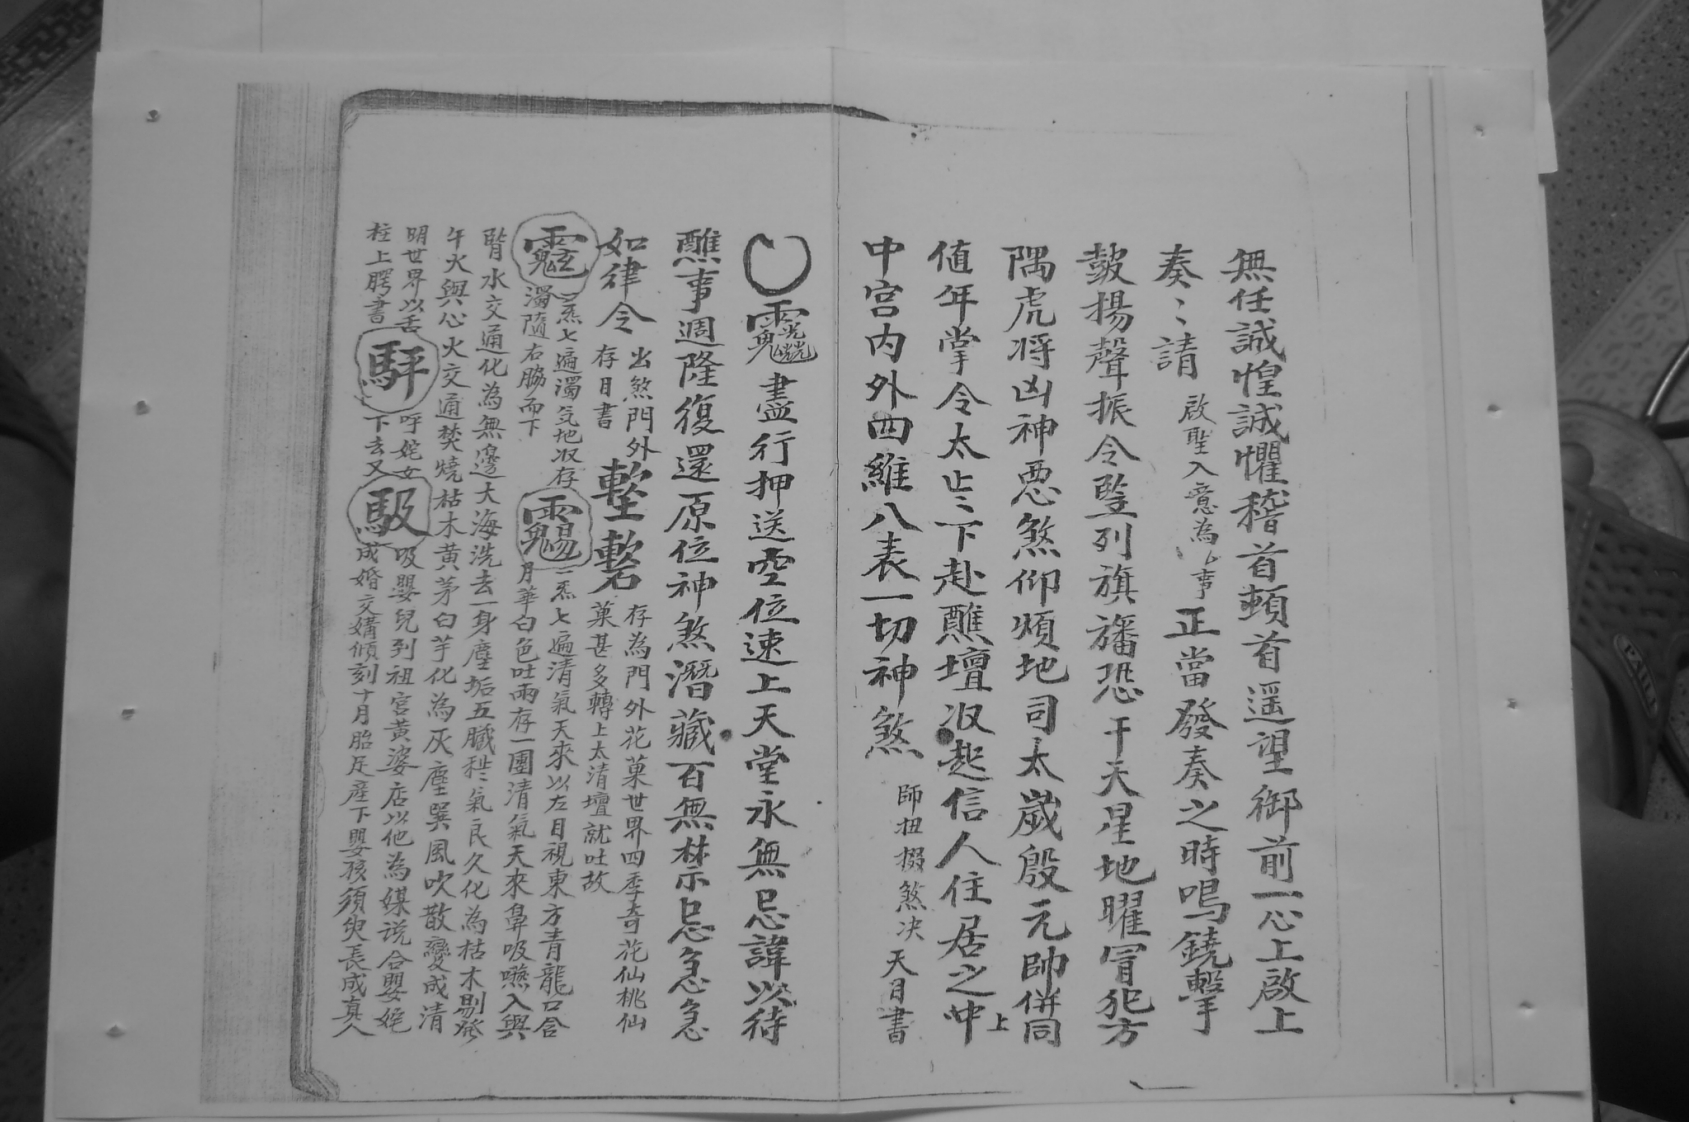 無任誠惶誠懼稽首頓首遥望御前一心上啟上
奏〻請 啟聖入意為事 正當發奏之時鳴鐃擊
鼓揚聲振令豎列旗旛恐干天星地曜冐犯方
隅虎将凶神惡煞仰煩地司太歲殷元帥併同
值年掌令太歲下赴醮壇收起信人住居之中上
中宫内外四維八表一切神煞 師扭掇煞决 天目書
盡行押送空位速上天堂永無忌諱以待
醮事週隆復還原位神煞潛藏百無禁忌急急
如律令 出煞門外 存目書 存為門外花菓世界四季奇花仙桃仙
菓甚多轉上太清壇就吐故
炁七遍濁气地收存
濁隨右脇而下 二炁七遍清氣天來以左目視東方青龍口含
月華白色吐雨存一團清氣天來鼻吸嚥入與
腎水交通化為無邊大海洗去一身塵垢五臟秽氣良久化為枯木剔發
午火與心火交通焚燒枯木黄茅白芋化為灰塵巽風吹散變成清
明世界以舌 呼姹女 吸嬰兒到祖宫黄婆店以他為媒说合嬰姹
柱上腭書 下去又 成婚交媾傾刻十月胎足產下嬰孩須臾長成真人